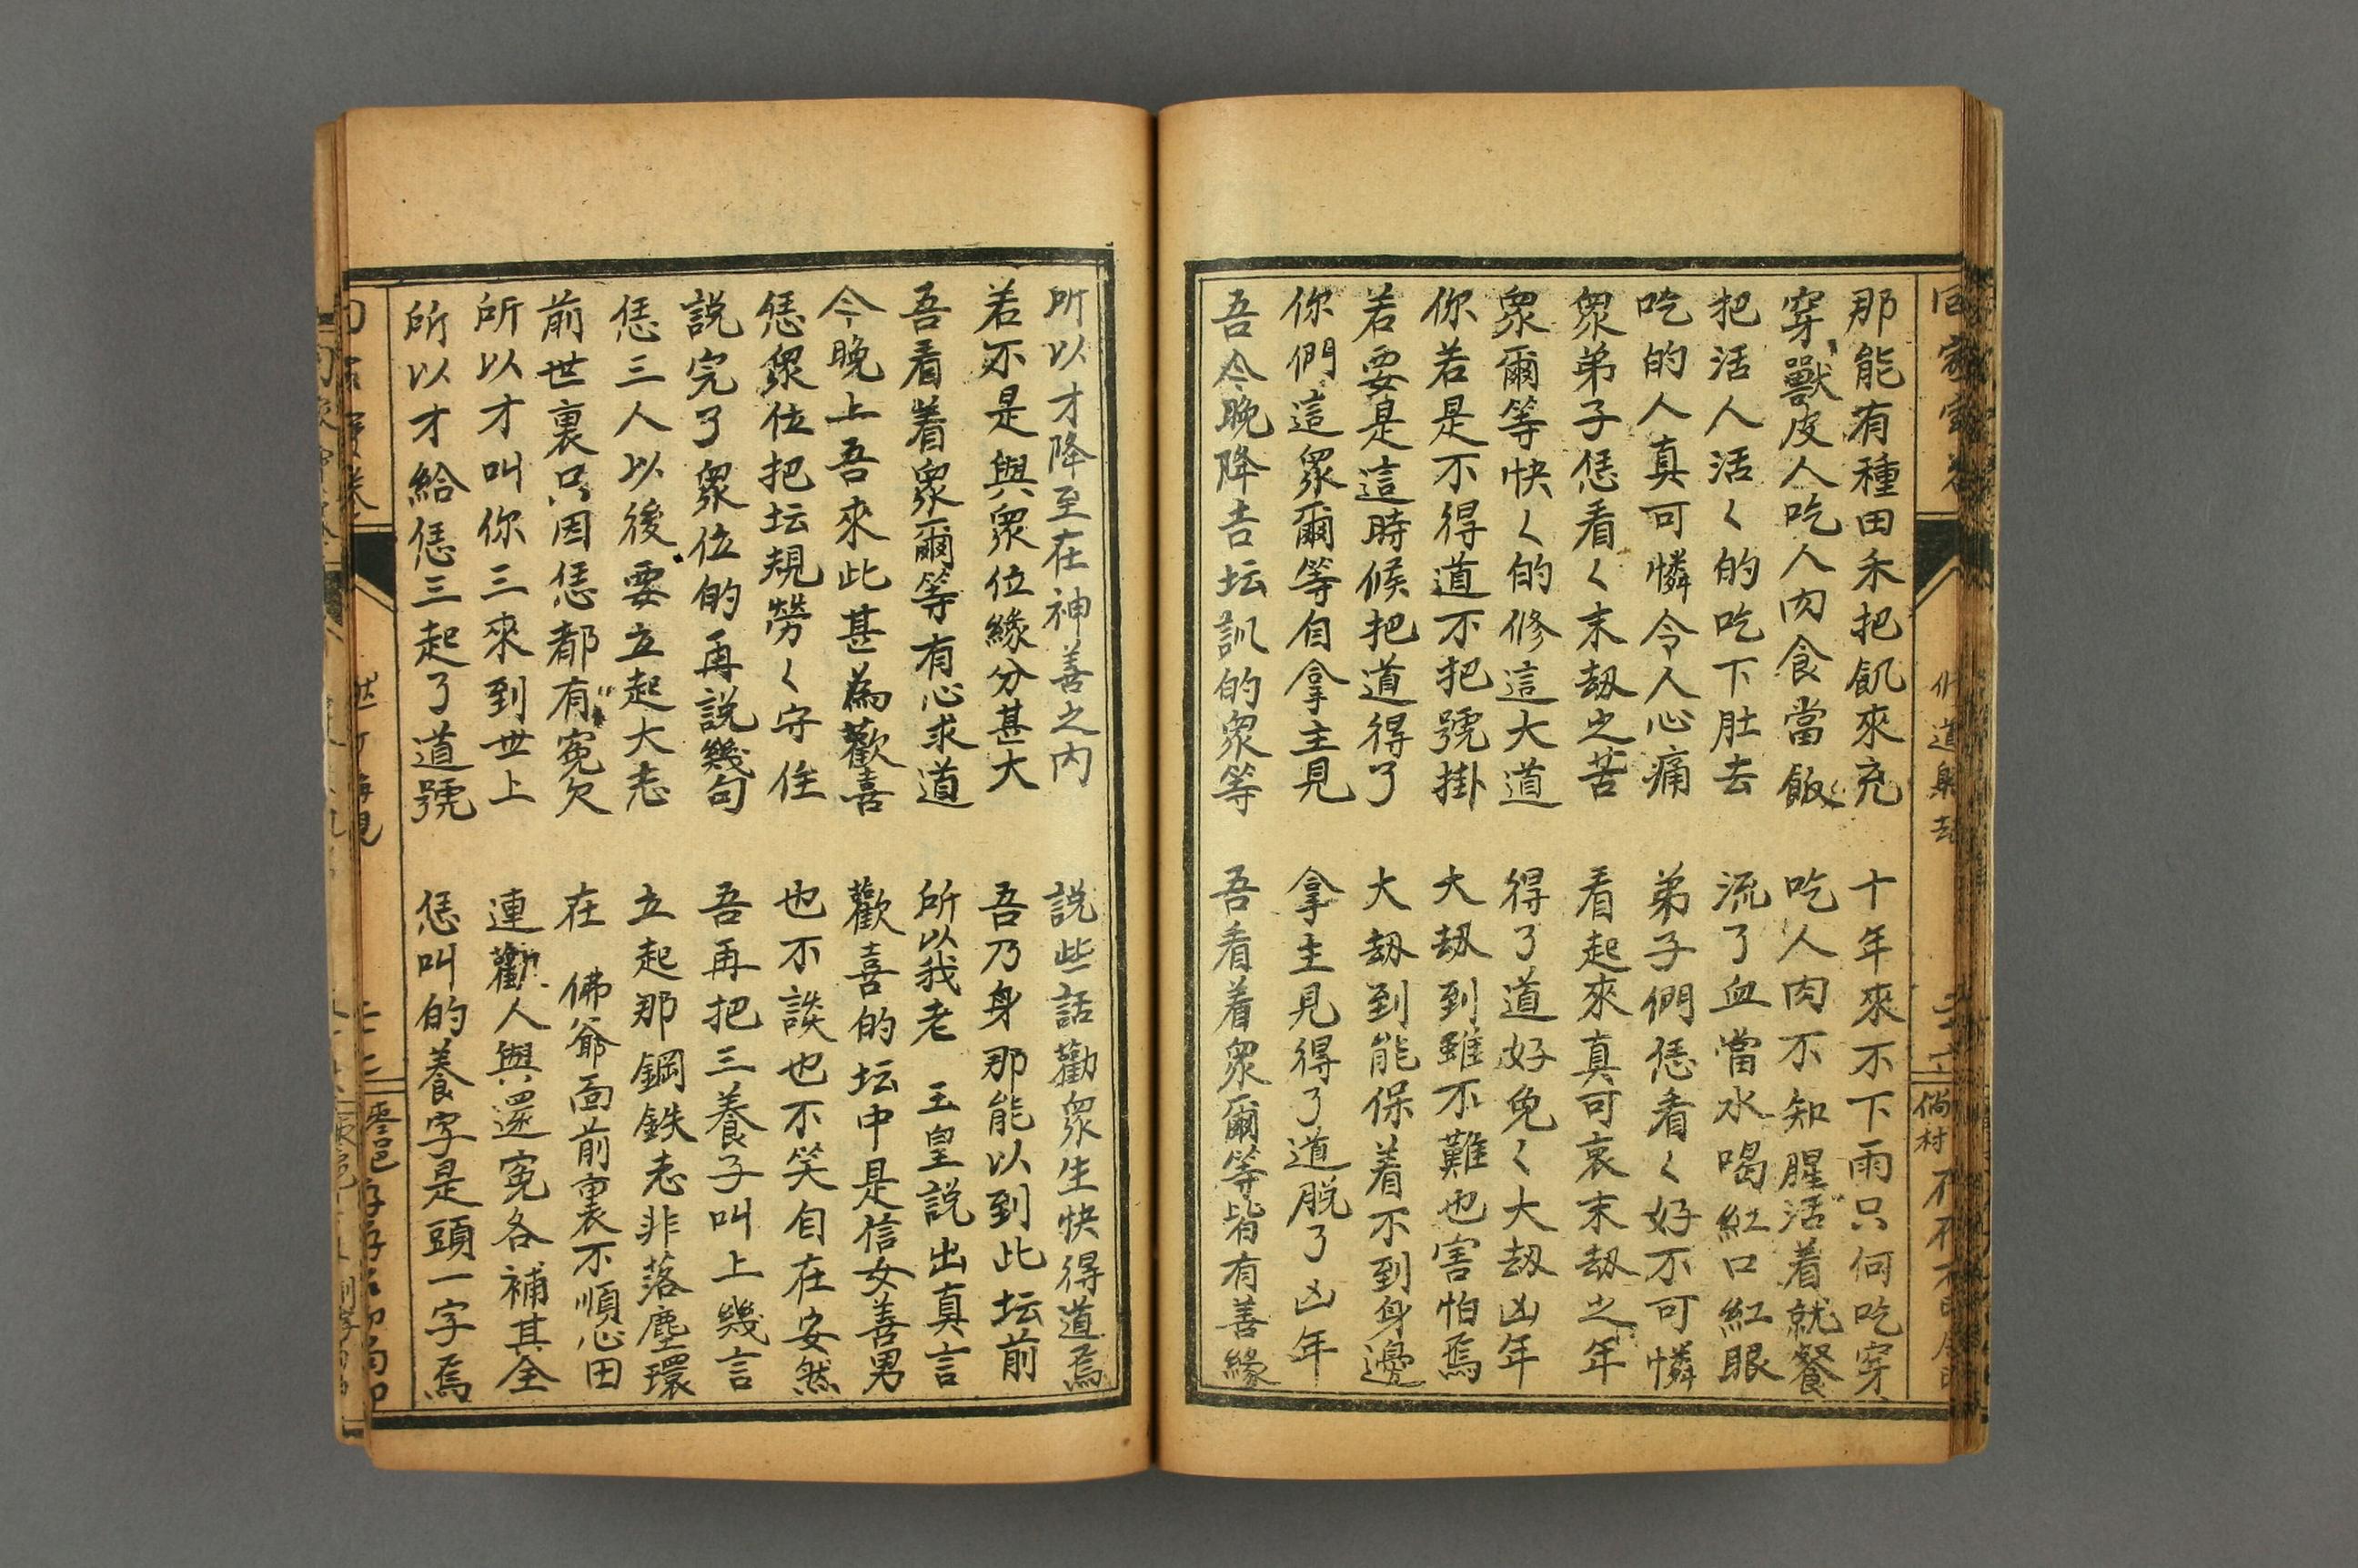 那能有種田禾把飢來充　十年來不下雨只何吃穿
穿獸皮人吃人肉食當飯　吃人肉不知腥活着就餐
把活人活〱的吃下肚去　流了血當水喝紅口紅眼
吃的人真可憐令人心痛　弟子們恁看〱好不可憐
眾弟子恁看〱末刼之苦　看起來真可哀末刼之年
眾爾等快〱的修這大道　得了道好免〱大刼凶年
你若是不得道不把號掛　大刼到雖不難也害怕焉
若要是這時候把道得了　大刼到能保着不到身邊
你們這眾爾等自拿主見　拿主見得了道脱了凶年
吾今晚降吉坛訓的眾等　吾看着眾爾等皆有善緣
所以才降至在神善之内　説些話勸眾生快得道焉
若不是與眾位緣分甚大　吾乃身那能以到此坛前
吾看着眾爾等有心求道　所以我老　玉皇説出真言
今晚上吾來此甚為歡喜　歡喜的坛中是信女善男
恁眾位把坛規勞〱守住　也不談也不笑自在安然
説完了眾位的再説幾句　吾再把三養子叫上幾言
恁三人以後要立起大志　立起那鋼鉄志非落塵環
前世裏只因恁都有寃欠　在　佛爺面前裏不順心田
所以才叫你三來到世上　連勸人與還寃各補其全
所以才給恁三起了道號　恁叫的養字是頭一字焉